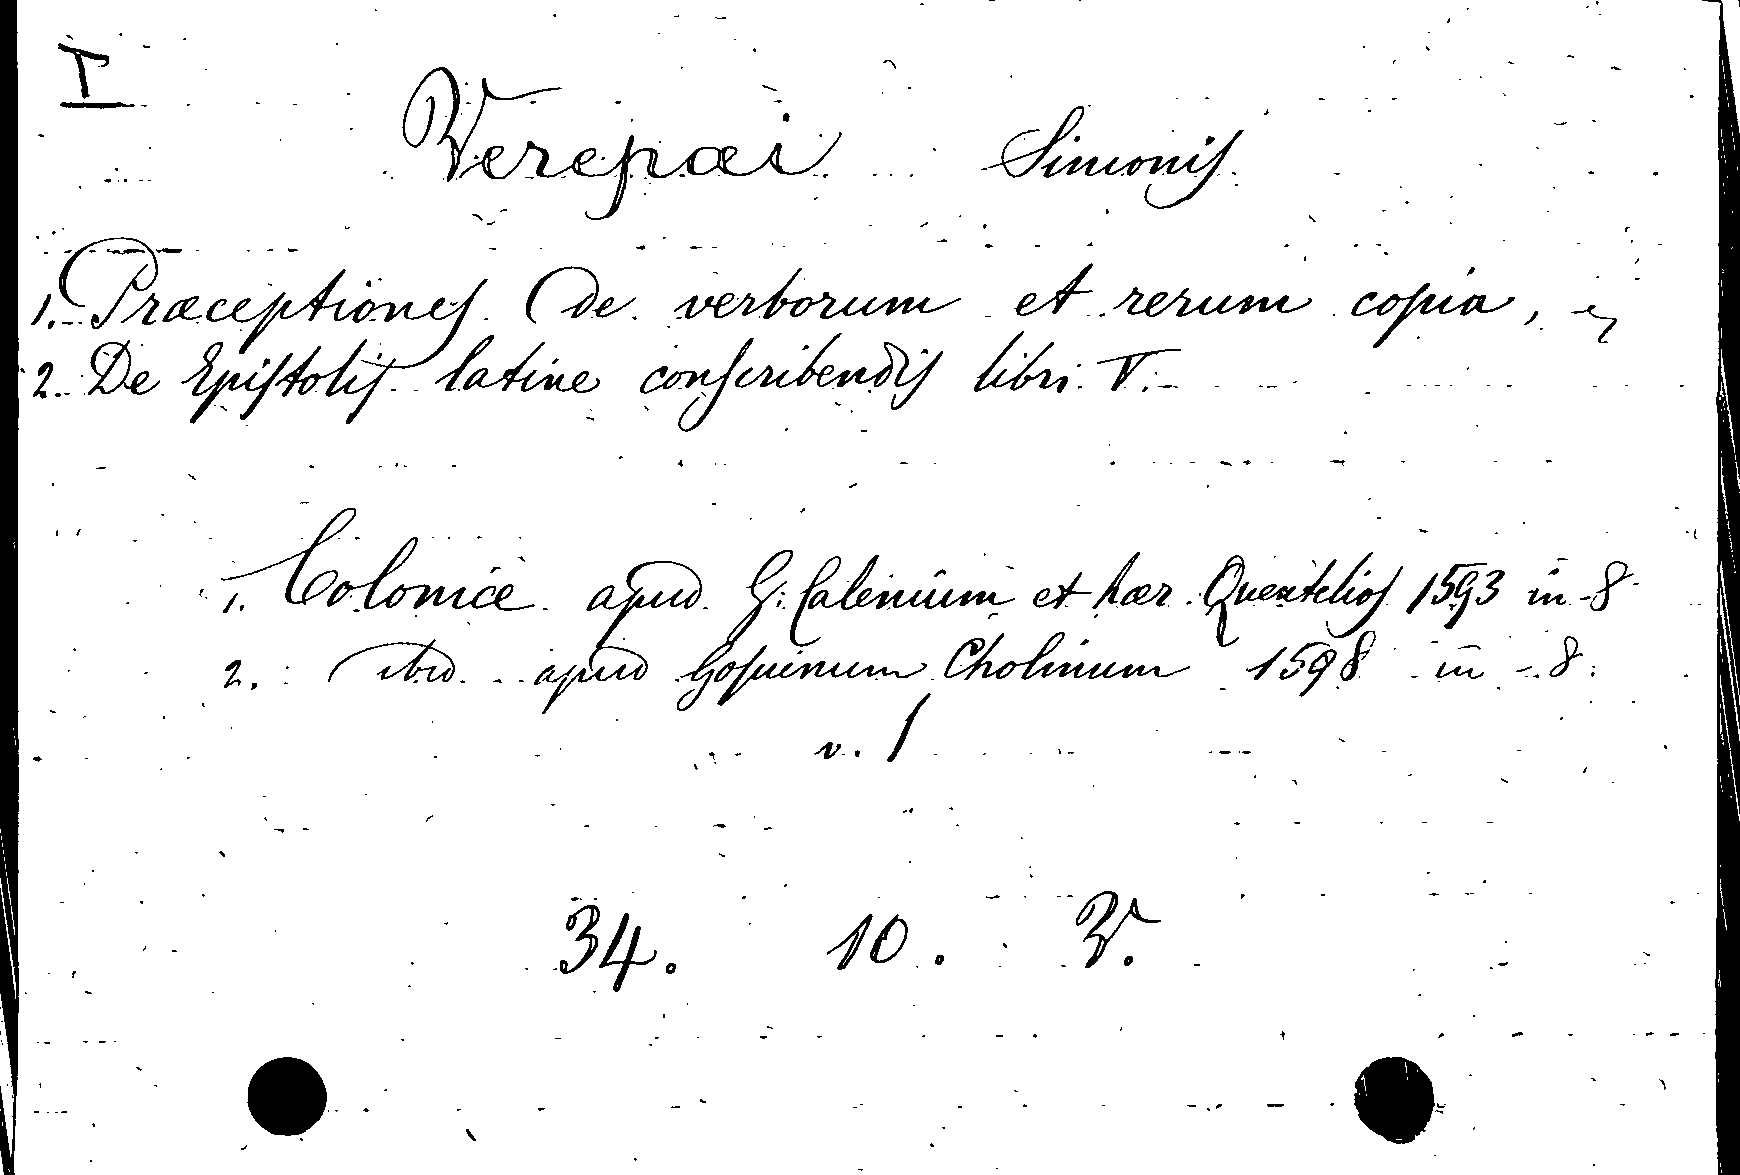 I
Verepæi Simonis
1. Præceptiones de verborum et rerum copia, &
2. De Epistolis latine conscribendis libri V.
1. Coloniæ apud G. Calenium et hær. Quentelios 1593 in-8
2. ibid. apud Gosuinum Cholinum 1598 in-8.
v. 1
34. 10. V.